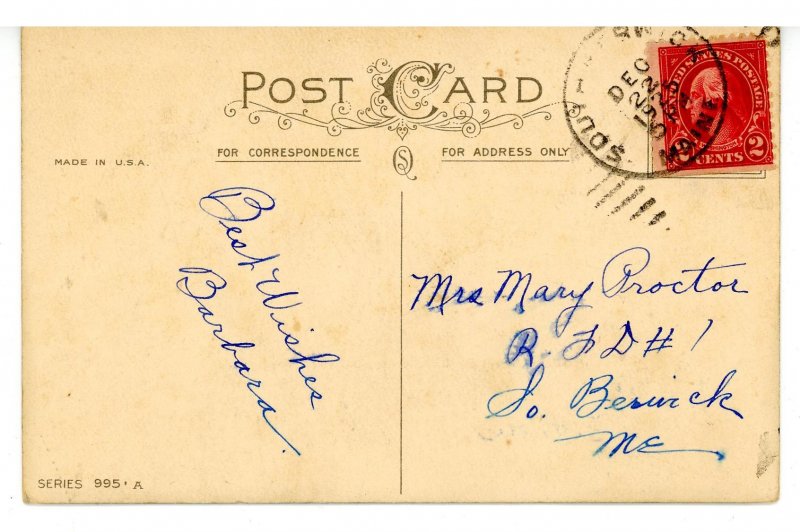 POST CARD
FOR CORRESPONDENCE
FOR ADDRESS ONLY
MADE IN U.S.A.
SOUTH BERWICK
DEC
22
MAINE
UNITED STATES POSTAGE
WASHINGTON
2 CENTS 2
Best Wishes
Barbara.
Mrs Mary Proctor
R. F D # 1
So. Berwick
ME
SERIES 995 · A